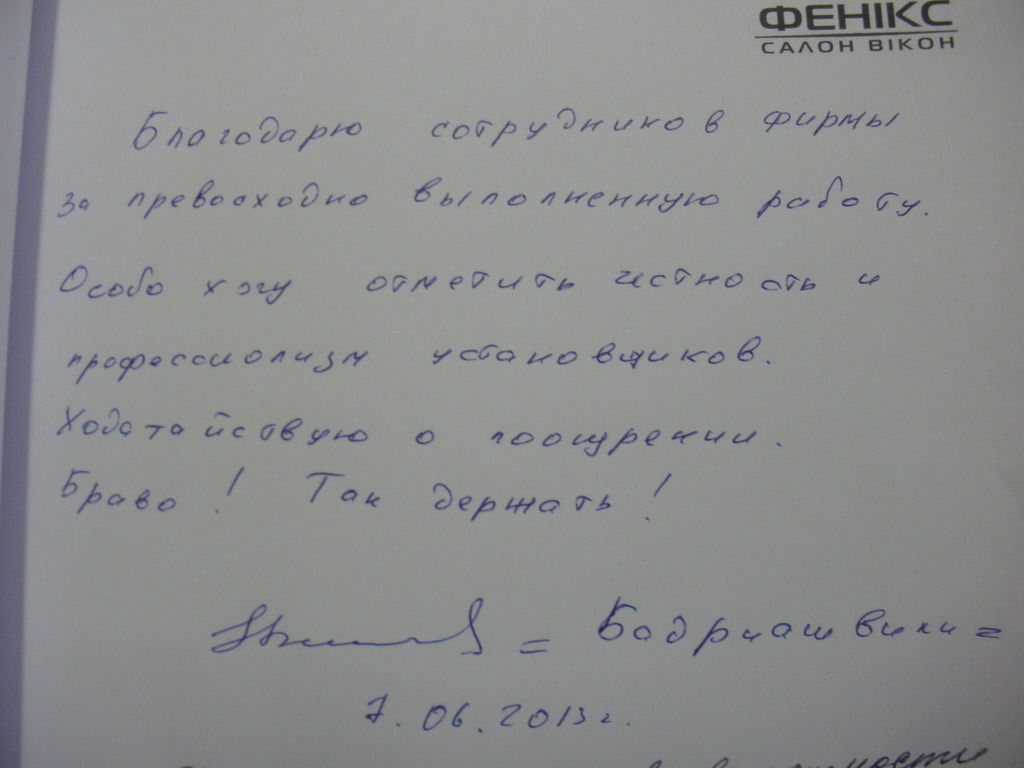 ФЕНІКС
САЛОН ВІКОН
Благодарю сотрудников фирмы
за превосходно выполненную работу.
Особо хочу отметить честность и
профессиолизм установщиков.
Ходатайствую о поощрении.
Браво! Так держать!
= Бадриашвили =
7.06.2013г.